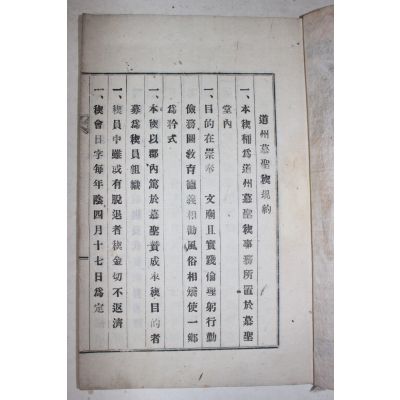 道州慕聖稧規約
一、本稧稱爲道州慕聖稧事務所置於慕聖
堂內
一、目的在崇奉 文廟且實踐倫理躬行勤
儉務圖敎育德義相勸風俗相矯使一鄕
爲矜式
一、本稧以郡內篤於慕聖賛成本稧目的者
募爲稧員組織
一、稧員中雖或有脫退者稧金切不返濟
一、稧會日字每年陰四月十七日爲定